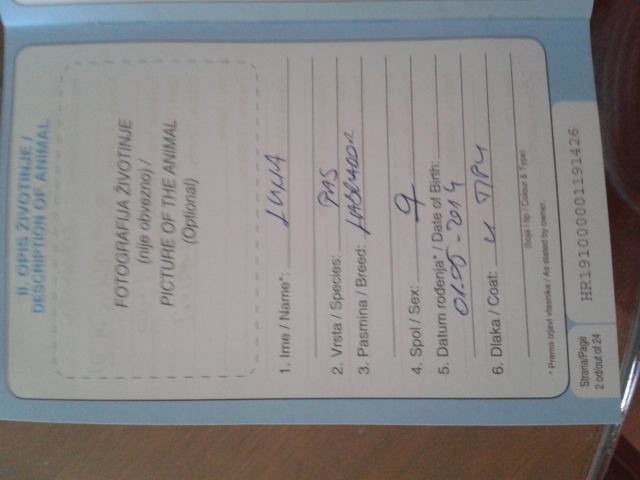 II. OPIS ŽIVOTINJE /
DESCRIPTION OF ANIMAL
FOTOGRAFIJA ŽIVOTINJE
(nije obvezno) /
PICTURE OF THE ANIMAL
(Optional)
1. Ime / Name*:
2. Vrsta / Species: PAS
3. Pasmina / Breed: LABRADOR
4. Spol / Sex: ♀
5. Datum rođenja* / Date of Birth:
6. Dlaka / Coat:
(boja i tip / Colour & Type)
* Prema izjavi vlasnika / As stated by owner.
Strana/Page
2 od/out of 24
HR1910000001191426